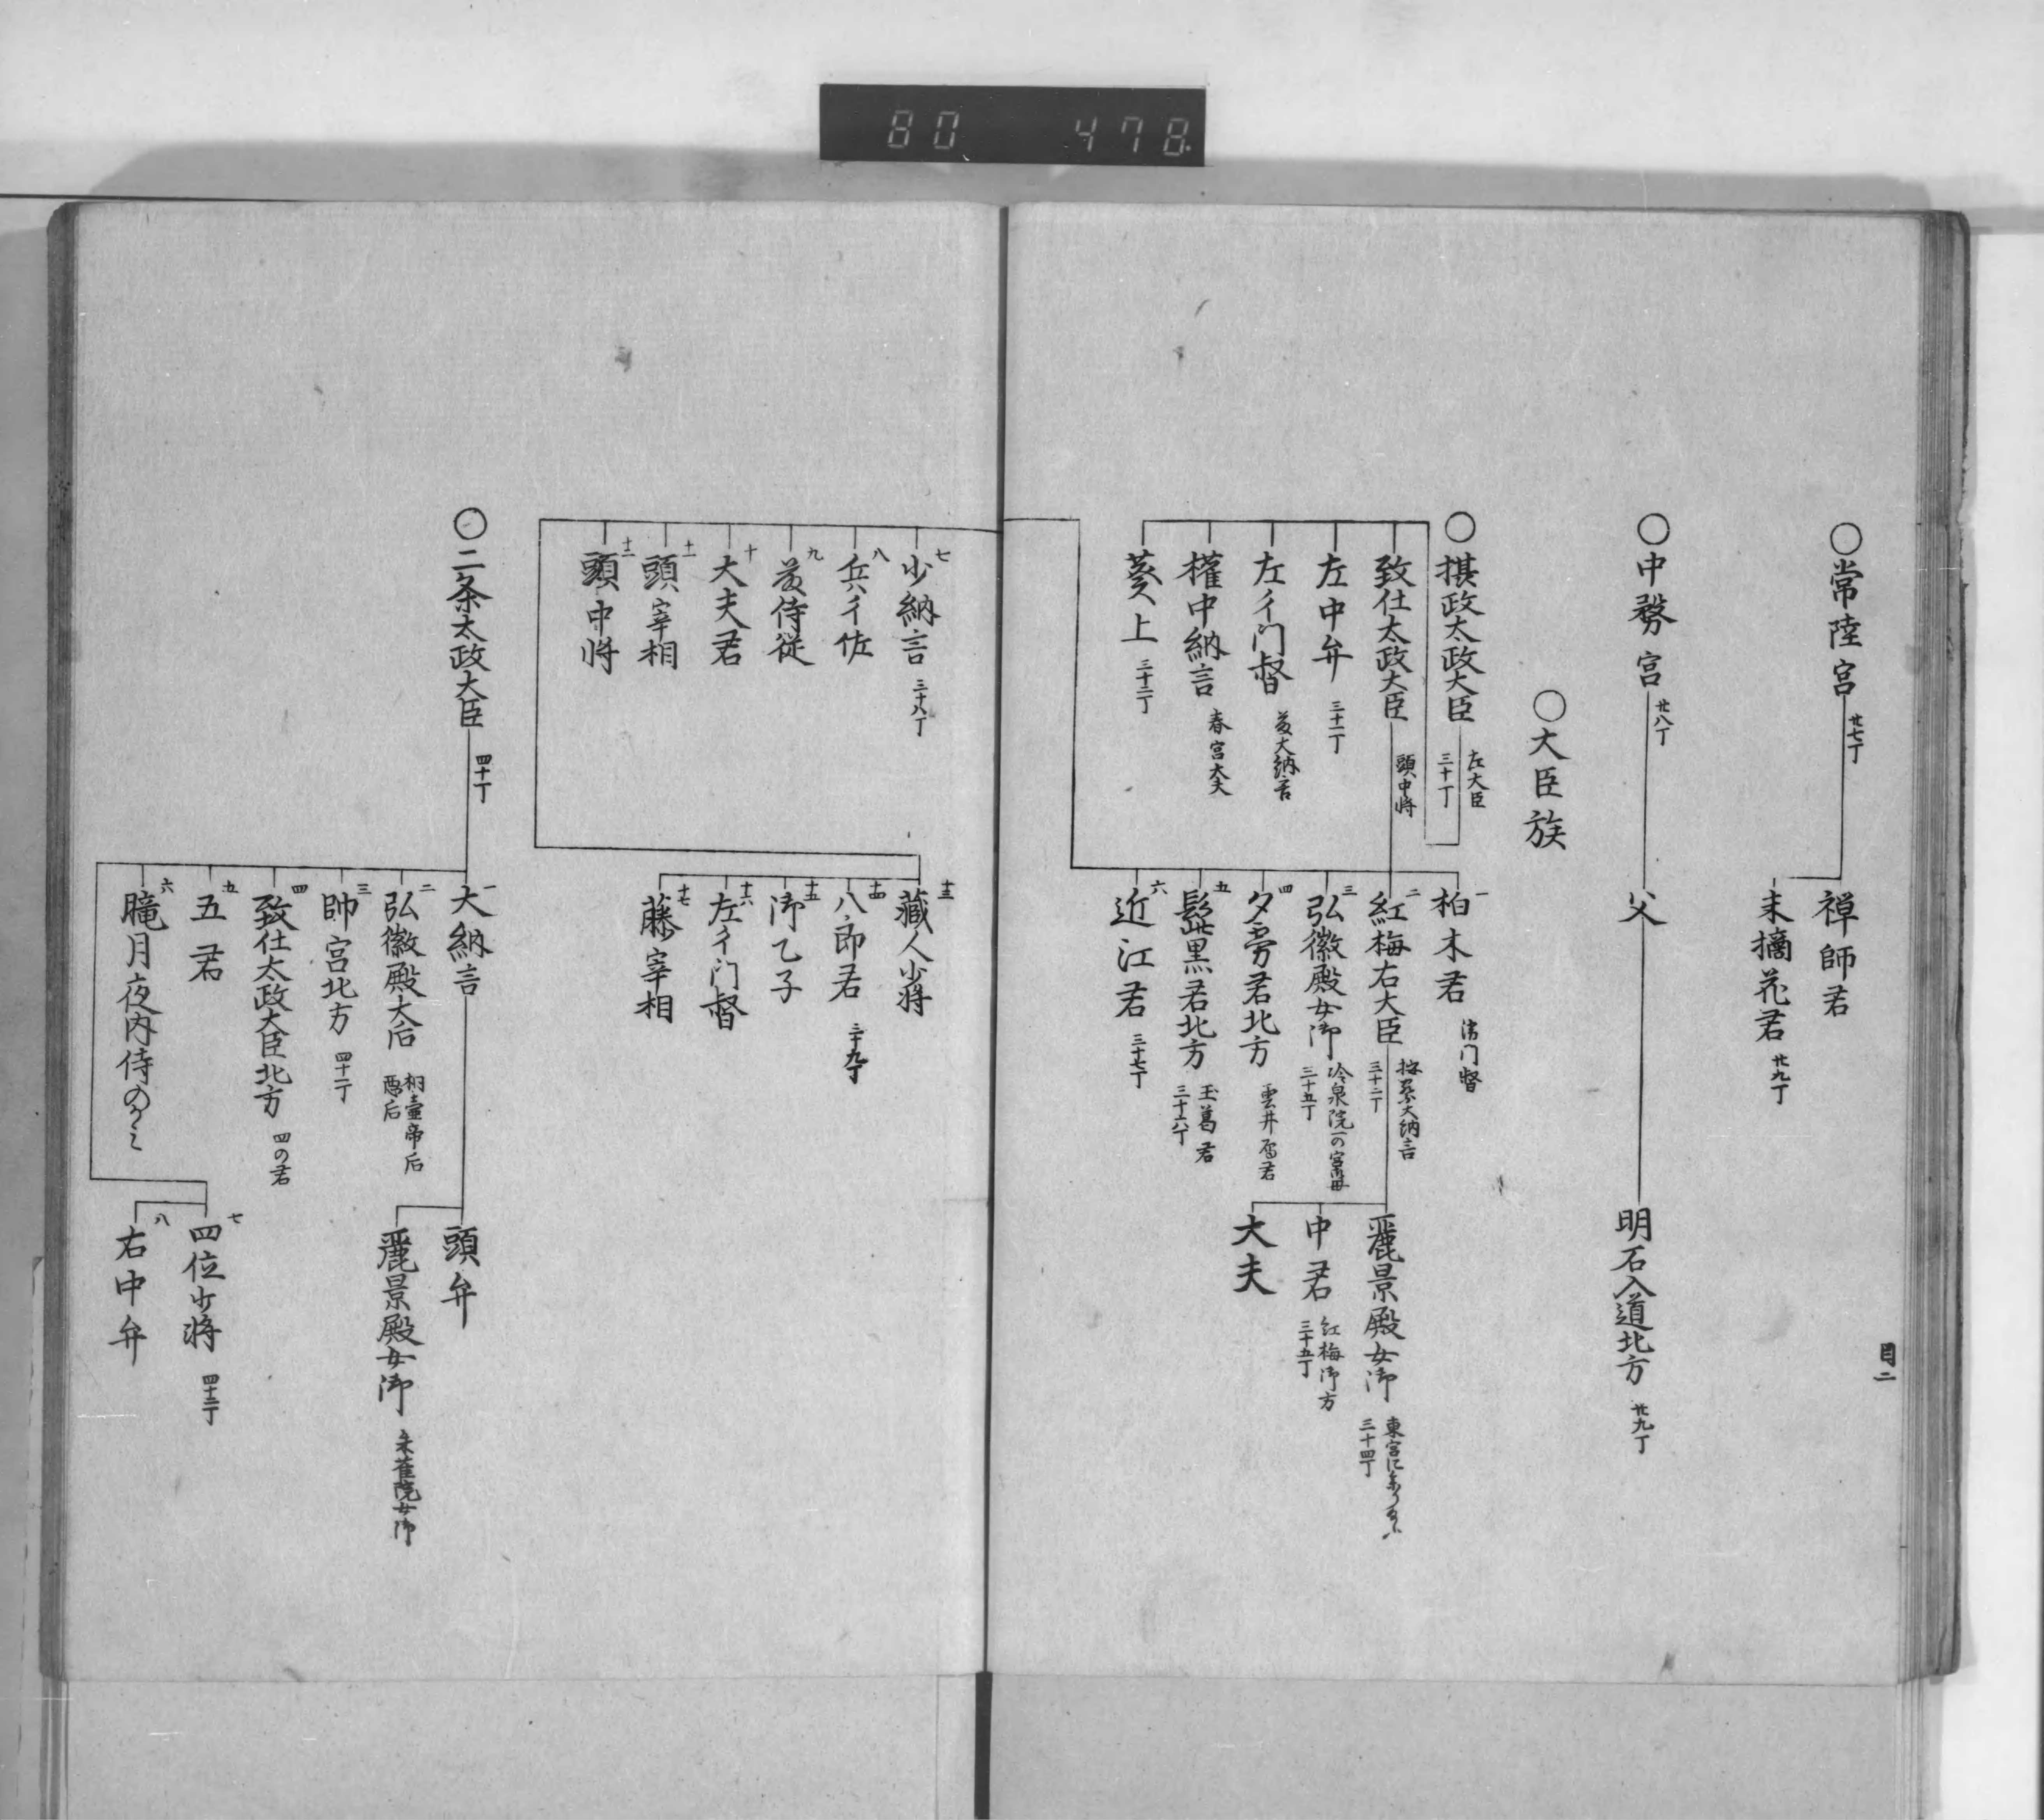 80 478
○常陸宮 廿七丁
禅師君
末摘花君 廿九丁
○中務宮 廿八丁
父
明石入道北方 廿九丁
○大臣族
○摂政太政大臣 左大臣 三十丁
致仕太政大臣 頭中将
左中弁 三十一丁
左イ门督 藤大納言
權中納言 春宮大夫
葵上 三十二丁
一 柏木君 衛门督
二 紅梅右大臣 按察大納言 三十二丁
三 弘徽殿女御 冷泉院一の宮母 三十五丁
四 夕霧君北方 雲井鴈君
五 髭黒君北方 玉葛君 三十六丁
六 近江君 三十七丁
麗景殿女御 東宮に 三十四丁
中君 紅梅御方 三十五丁
大夫
目二
七 少納言 三十八丁
八 兵イ佐
九 藤侍従
十 大夫君
十一 頭宰相
十二 頭中将
十三 蔵人少将
十四 八郎君 三十九丁
十五 御乙子
十六 左イ门督
十七 藤宰相
○二条太政大臣 四十丁
一 大納言
二 弘徽殿大后 桐壷帝后 悪后
三 帥宮北方 四十一丁
四 致仕太政大臣北方 四の君
五 五君
六 朧月夜内侍のかミ
頭弁
麗景殿女御 朱雀院女御
七 四位少将 四十三丁
八 右中弁